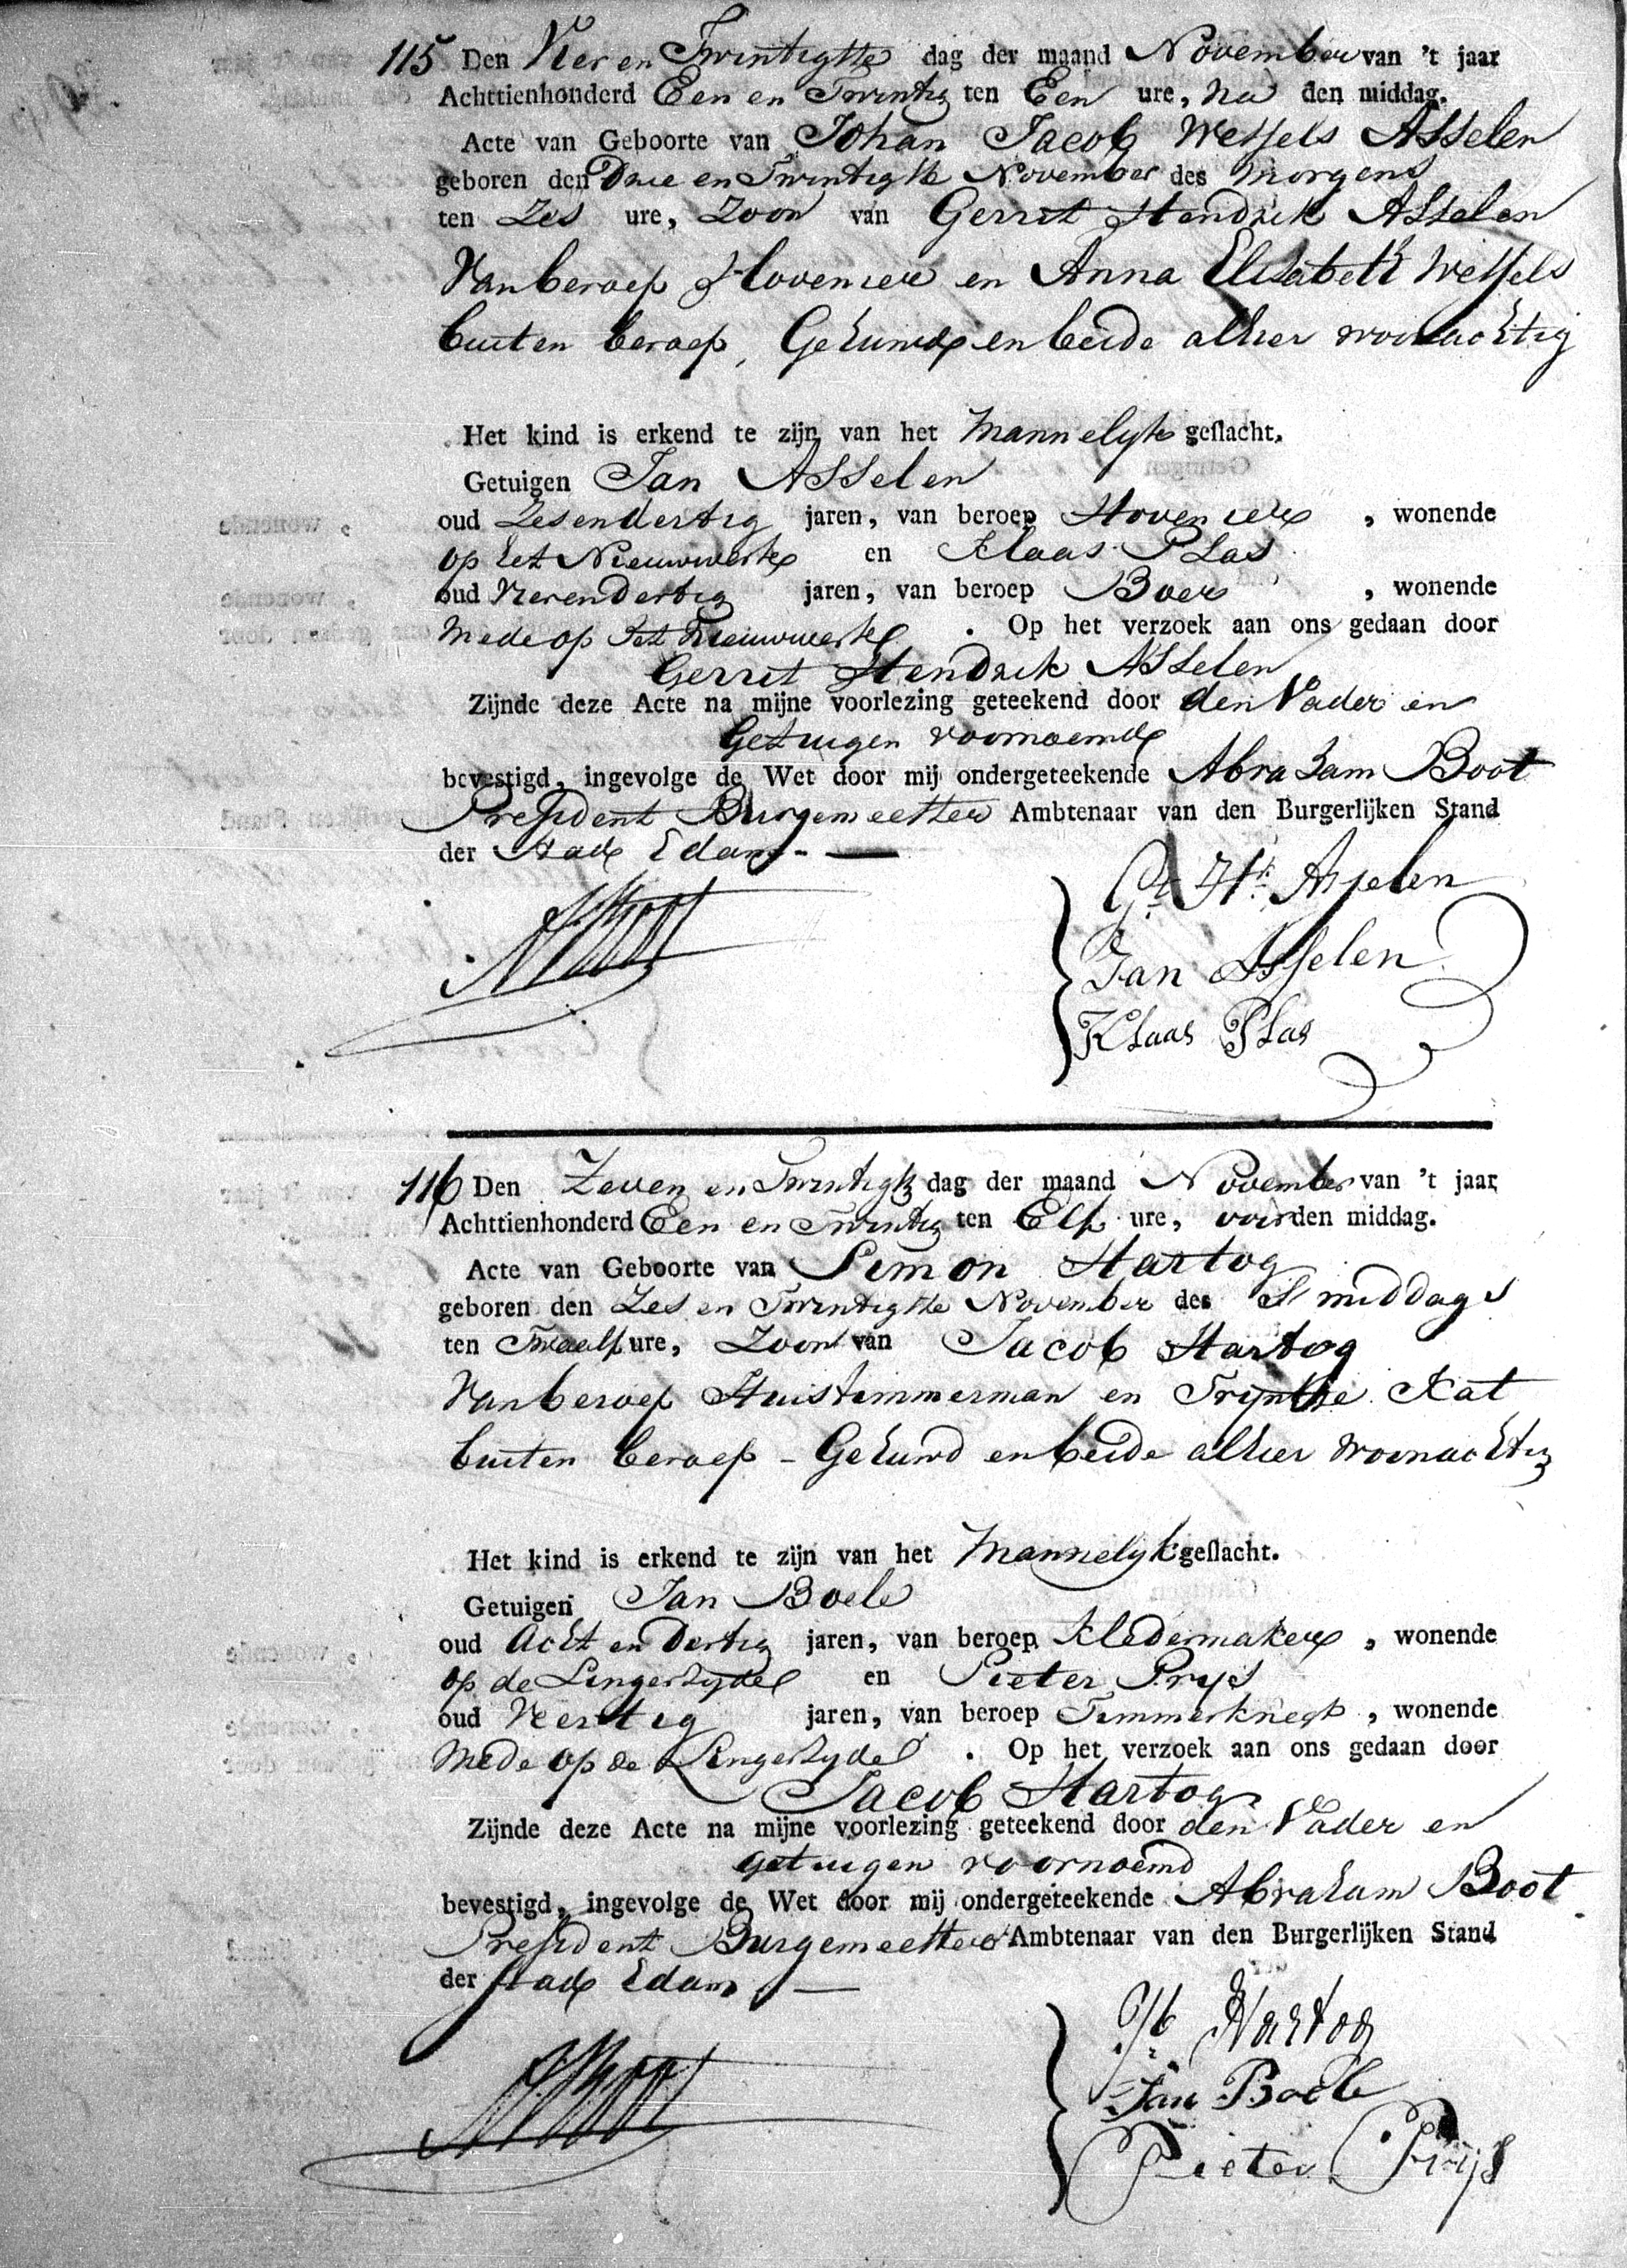 115 Den Vier en Twintigste dag der maand November van 't jaar
Achttienhonderd Een en Twintig ten Een ure, na den middag.
Acte van Geboorte van Johan Jacob Wessels Asselen
geboren den Drie en Twintigste November des morgens
ten Zes ure, Zoon van Gerret Hendrik Asselen
Van beroep Hovenier en Anna Elisabeth Wessels
buiten beroep, Gehuwd en beide alhier woonachtig
Het kind is erkend te zijn van het Mannelyk geslacht.
Getuigen Jan Asselen
oud Zesendertig jaren, van beroep Hovenier, wonende
op het Nieuwwerk en Klaas Plas
oud Vierendertig jaren, van beroep Boer, wonende
mede op het Nieuwwerk. Op het verzoek aan ons gedaan door
Gerret Hendrik Asselen
Zijnde deze Acte na mijne voorlezing geteekend door den Vader en
Getuigen voornoemd
bevestigd, ingevolge de Wet door mij ondergeteekende Abraham Boot
President Burgemeester Ambtenaar van den Burgerlijken Stand
der stad Edam
Gt Hk Asselen
Jan Asselen
Klaas Plas
ABoot
116 Den Zeven en Twintigste dag der maand November van 't jaar
Achttienhonderd Een en Twintig ten Elf ure, voor den middag.
Acte van Geboorte van Simon Hartog
geboren den Zes en Twintigste November des s middags
ten Twaalf ure, Zoon van Jacob Hartog
Van beroep Huistimmerman en Tryntje Kat
buiten beroep - Gehuwd en beide alhier woonachtig
Het kind is erkend te zijn van het Mannelyk geslacht.
Getuigen Jan Boele
oud Acht en Dertig jaren, van beroep Kledermaker, wonende
op de Lingerzyde en Pieter Prys
oud Veertig jaren, van beroep Timmerknegt, wonende
mede op de Lingerzyde. Op het verzoek aan ons gedaan door
Jacob Hartog
Zijnde deze Acte na mijne voorlezing geteekend door den Vader en
getuigen voornoemd
bevestigd, ingevolge de Wet door mij ondergeteekende Abraham Boot
President Burgemeester Ambtenaar van den Burgerlijken Stand
der stad Edam
Hartog
Jan Boele
Pieter Prijs
ABoot